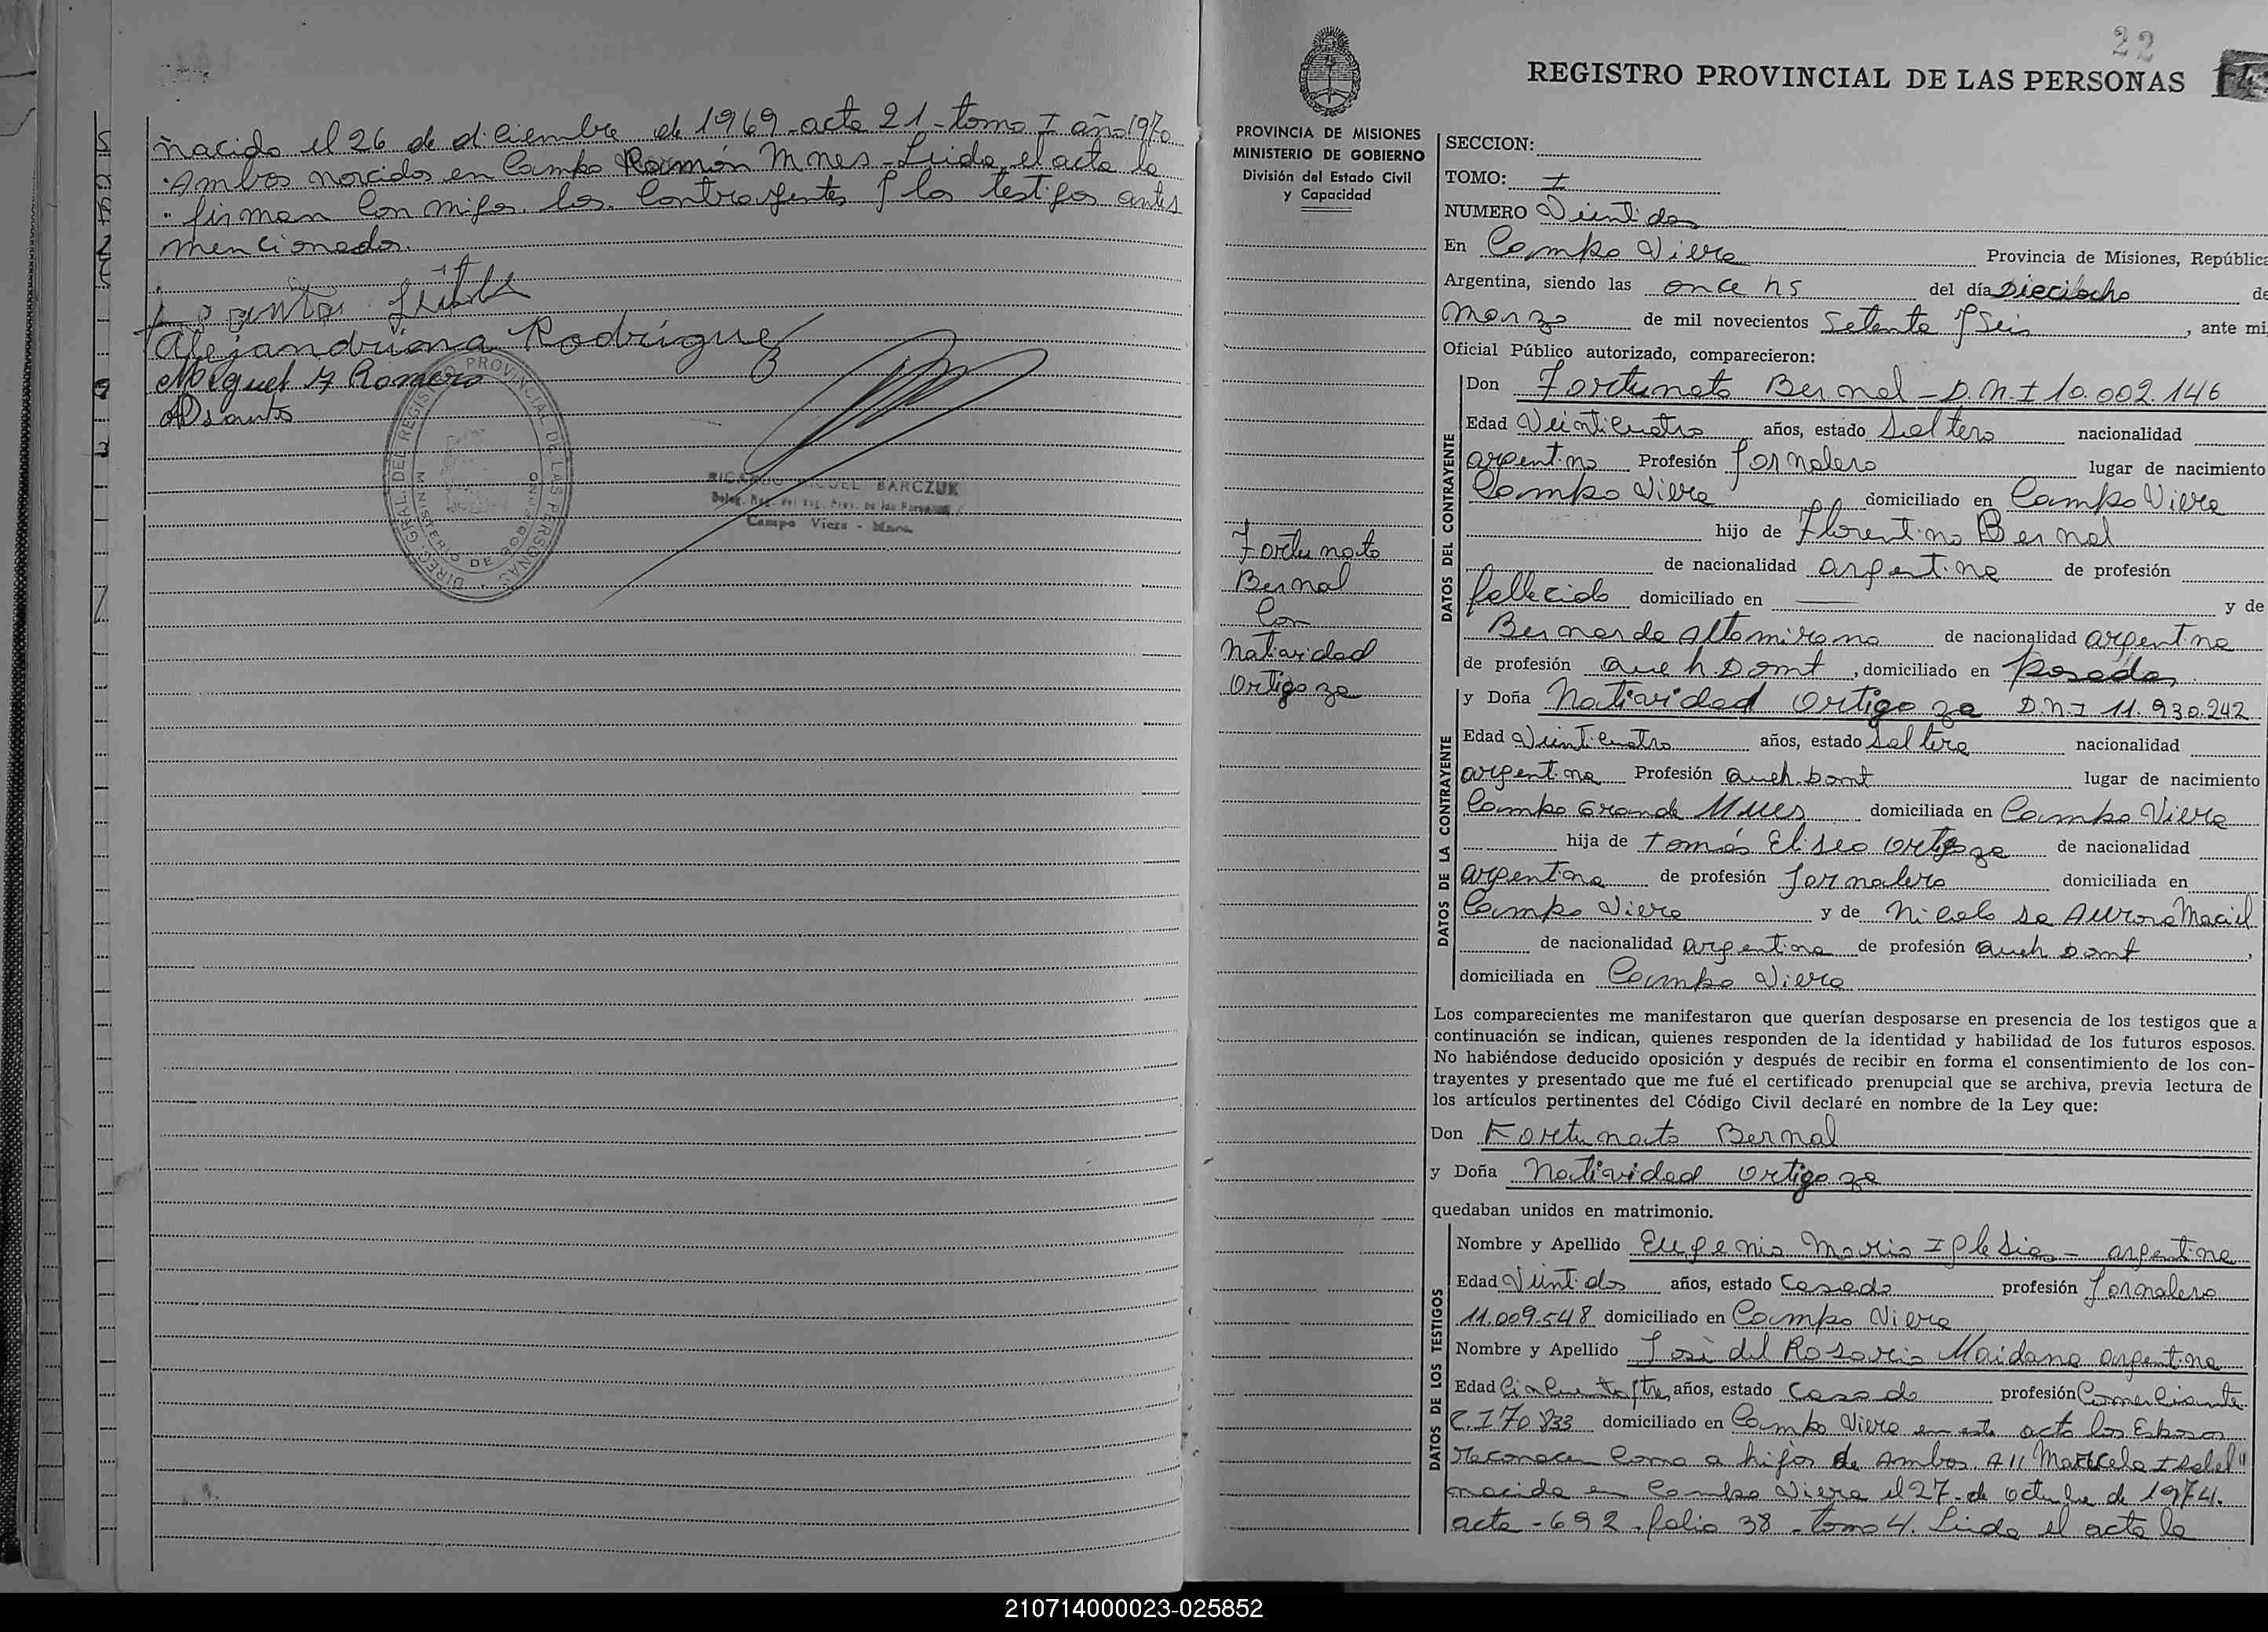 nacido el 26 de diciembre de 1969 - acta 21 - tomo I año 1970
Ambos nacidos en Campo Ramón Mnes - Leida el acta la
firman con migo los contrayentes y los testigos antes
mencionados.
Alejandrina Rodrigue
Miguel Romero
Dsantos
DIREC. GRAL. DEL REGISTRO PROVINCIAL DE LAS PERSONAS
MINISTERIO DE GOBIERNO
RICARDO MIGUEL BARCZUK
Campo Viera - Mnes.
22
REGISTRO PROVINCIAL DE LAS PERSONAS
PROVINCIA DE MISIONES
MINISTERIO DE GOBIERNO
División del Estado Civil
y Capacidad
Fortunato
Bernal
Con
Natividad
Ortigoza
SECCION:
TOMO: I
NUMERO Veintidos
En Campo Viera Provincia de Misiones, República
Argentina, siendo las once hs del día Dieciocho de
Marzo de mil novecientos Setenta y Seis, ante mi,
Oficial Público autorizado, comparecieron:
DATOS DEL CONTRAYENTE
Don Fortunato Bernal - D.N.I 10.002.146
Edad Veinticuatro años, estado Soltero nacionalidad
argentino Profesión Jornalero lugar de nacimiento
Campo Viera domiciliado en Campo Viera
hijo de Florentino Bernal
de nacionalidad argentina de profesión
fallecido domiciliado en —— y de
Bernarda Altamirano de nacionalidad argentina
de profesión Queh Domt, domiciliado en Posadas
DATOS DE LA CONTRAYENTE
y Doña Natividad Ortigoza D.N.I 11.930.242
Edad Veinticuatro años, estado Soltera nacionalidad
argentina Profesión Queh. Domt lugar de nacimiento
Campo Grande Mnes domiciliada en Campo Viera
hija de Tomás Eliseo Ortigoza de nacionalidad
argentina de profesión Jornalero domiciliada en
Campo Viera y de Nicolasa Aurora Maciel
de nacionalidad argentina de profesión Queh Domt,
domiciliada en Campo Viera
Los comparecientes me manifestaron que querían desposarse en presencia de los testigos que a
continuación se indican, quienes responden de la identidad y habilidad de los futuros esposos.
No habiéndose deducido oposición y después de recibir en forma el consentimiento de los con-
trayentes y presentado que me fué el certificado prenupcial que se archiva, previa lectura de
los artículos pertinentes del Código Civil declaré en nombre de la Ley que:
Don Fortunato Bernal
y Doña Natividad Ortigoza
quedaban unidos en matrimonio.
DATOS DE LOS TESTIGOS
Nombre y Apellido Eugenio Mario Iglesias - argentina
Edad Veintidos años, estado Casado profesión Jornalero
11.009.548 domiciliado en Campo Viera
Nombre y Apellido José del Rosario Maidana argentina
Edad Cincuentaytres años, estado Casado profesión Comerciante
C.I 70.833 domiciliado en Campo Viera en este acto los Esposos
reconocen como a hijos de Ambos. A "Maricela Isabel"
nacida en Campo Viera el 27 de octubre de 1974.
acta - 692 - folio 38 - tomo 4. Leida el acta la
210714000023-025852